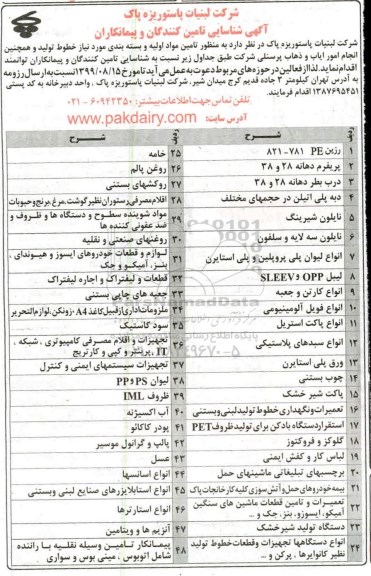 شرکت لبنیات پاستوریزه پاک
آگهی شناسایی تامین کنندگان و پیمانکاران
شرکت لبنیات پاستوریزه پاک در نظر دارد به منظور تامین مواد اولیه و بسته بندی مورد نیاز خطوط تولید و همچنین
انجام امور ایاب و ذهاب پرسنلی شرکت طبق جداول زیر نسبت به شناسایی تامین کنندگان و پیمانکاران توانمند
اقدام نماید. لذا از فعالین در حوزه های مربوط دعوت به عمل می آید تا مورخ ۱۳۹۹/۰۸/۱۵ نسبت به ارسال رزومه
به آدرس تهران کیلومتر ۳ جاده قدیم کرج میدان شیر، شرکت لبنیات پاستوریزه پاک، واحد دبیرخانه به کد پستی
۱۳۸۷۶۹۵۴۵۱ اقدام فرمایند.
تلفن تماس جهت اطلاعات بیشتر: ۶۰۹۴۳۳۵۰ - ۰۲۱
آدرس سایت: www.pakdairy.com
ردیف شرح
۱ رزین PE ۷۸۱-۸۲۱
۲ پریفرم دهانه ۲۸ و ۳۸
۳ درب بطر دهانه ۲۸ و ۳۸
۴ دبه پلی اتیلن در حجمهای مختلف
۵ نایلون شیرینگ
۶ نایلون سه لایه و سلفون
۷ انواع لیوان پلی پروپلین و پلی استایرن
۸ لیبل OPP و SLEEV
۹ انواع کارتن و جعبه
۱۰ انواع فویل آلومینیومی
۱۱ انواع پاکت استریل
۱۲ انواع سبدهای پلاستیکی
۱۳ ورق پلی استایرن
۱۴ چوب بستنی
۱۵ پاکت شیر خشک
۱۶ تعمیرات و نگهداری خطوط تولید لبنی و بستنی
۱۷ استقرار دستگاه بادکن برای تولید ظروف PET
۱۸ گلوکز و فروکتوز
۱۹ لباس کار و کفش ایمنی
۲۰ برچسبهای تبلیغاتی ماشینهای حمل
۲۱ بیمه خودروهای حمل و آتش سوزی کلیه کارخانجات پاک
۲۲ تعمیرات و تامین قطعات ماشین های سنگین آمیکو، ایسوزو، بنز، جک و ...
۲۳ دستگاه تولید شیر خشک
۲۴ انواع دستگاهها تجهیزات و قطعات خطوط تولید نظیر کانوایرها، پرکن و ...
ردیف شرح
۲۵ خامه
۲۶ روغن پالم
۲۷ روکشهای بستنی
۲۸ اقلام مصرفی رستوران نظیر گوشت، مرغ، برنج و حبوبات
۲۹ مواد شوینده سطوح و دستگاه ها و ظروف و ضد عفونی کننده ها
۳۰ روغنهای صنعتی و نقلیه
۳۱ لوازم و قطعات خودروهای ایسوز و هیوندای، بنز، آمیکو و جک
۳۲ قطعات و لیفتراک و اجاره لیفتراک
۳۳ جعبه های چاپی بستنی
۳۴ ملزومات اداری از قبیل کاغذ A4، زونکن، لوازم التحریر
۳۵ سود کاستیک
۳۶ تجهیزات و اقلام مصرفی کامپیوتری، شبکه، IT، پرینتر و کپی و کارتریج
۳۷ تجهیزات سیستمهای ایمنی و کنترل
۳۸ لیوان PS و PP
۳۹ ظروف IML
۴۰ آب اکسیژنه
۴۱ پودر کاکائو
۴۲ پالپ و گرانول موسیر
۴۳ عسل
۴۴ انواع اسانسها
۴۵ انواع استابلایزرهای صنایع لبنی وبستنی
۴۶ انواع استارترها
۴۷ آنزیم ها و ویتامین
۴۸ پیمانکار تامین وسیله نقلیه با راننده شامل اتوبوس، مینی بوس و سواری